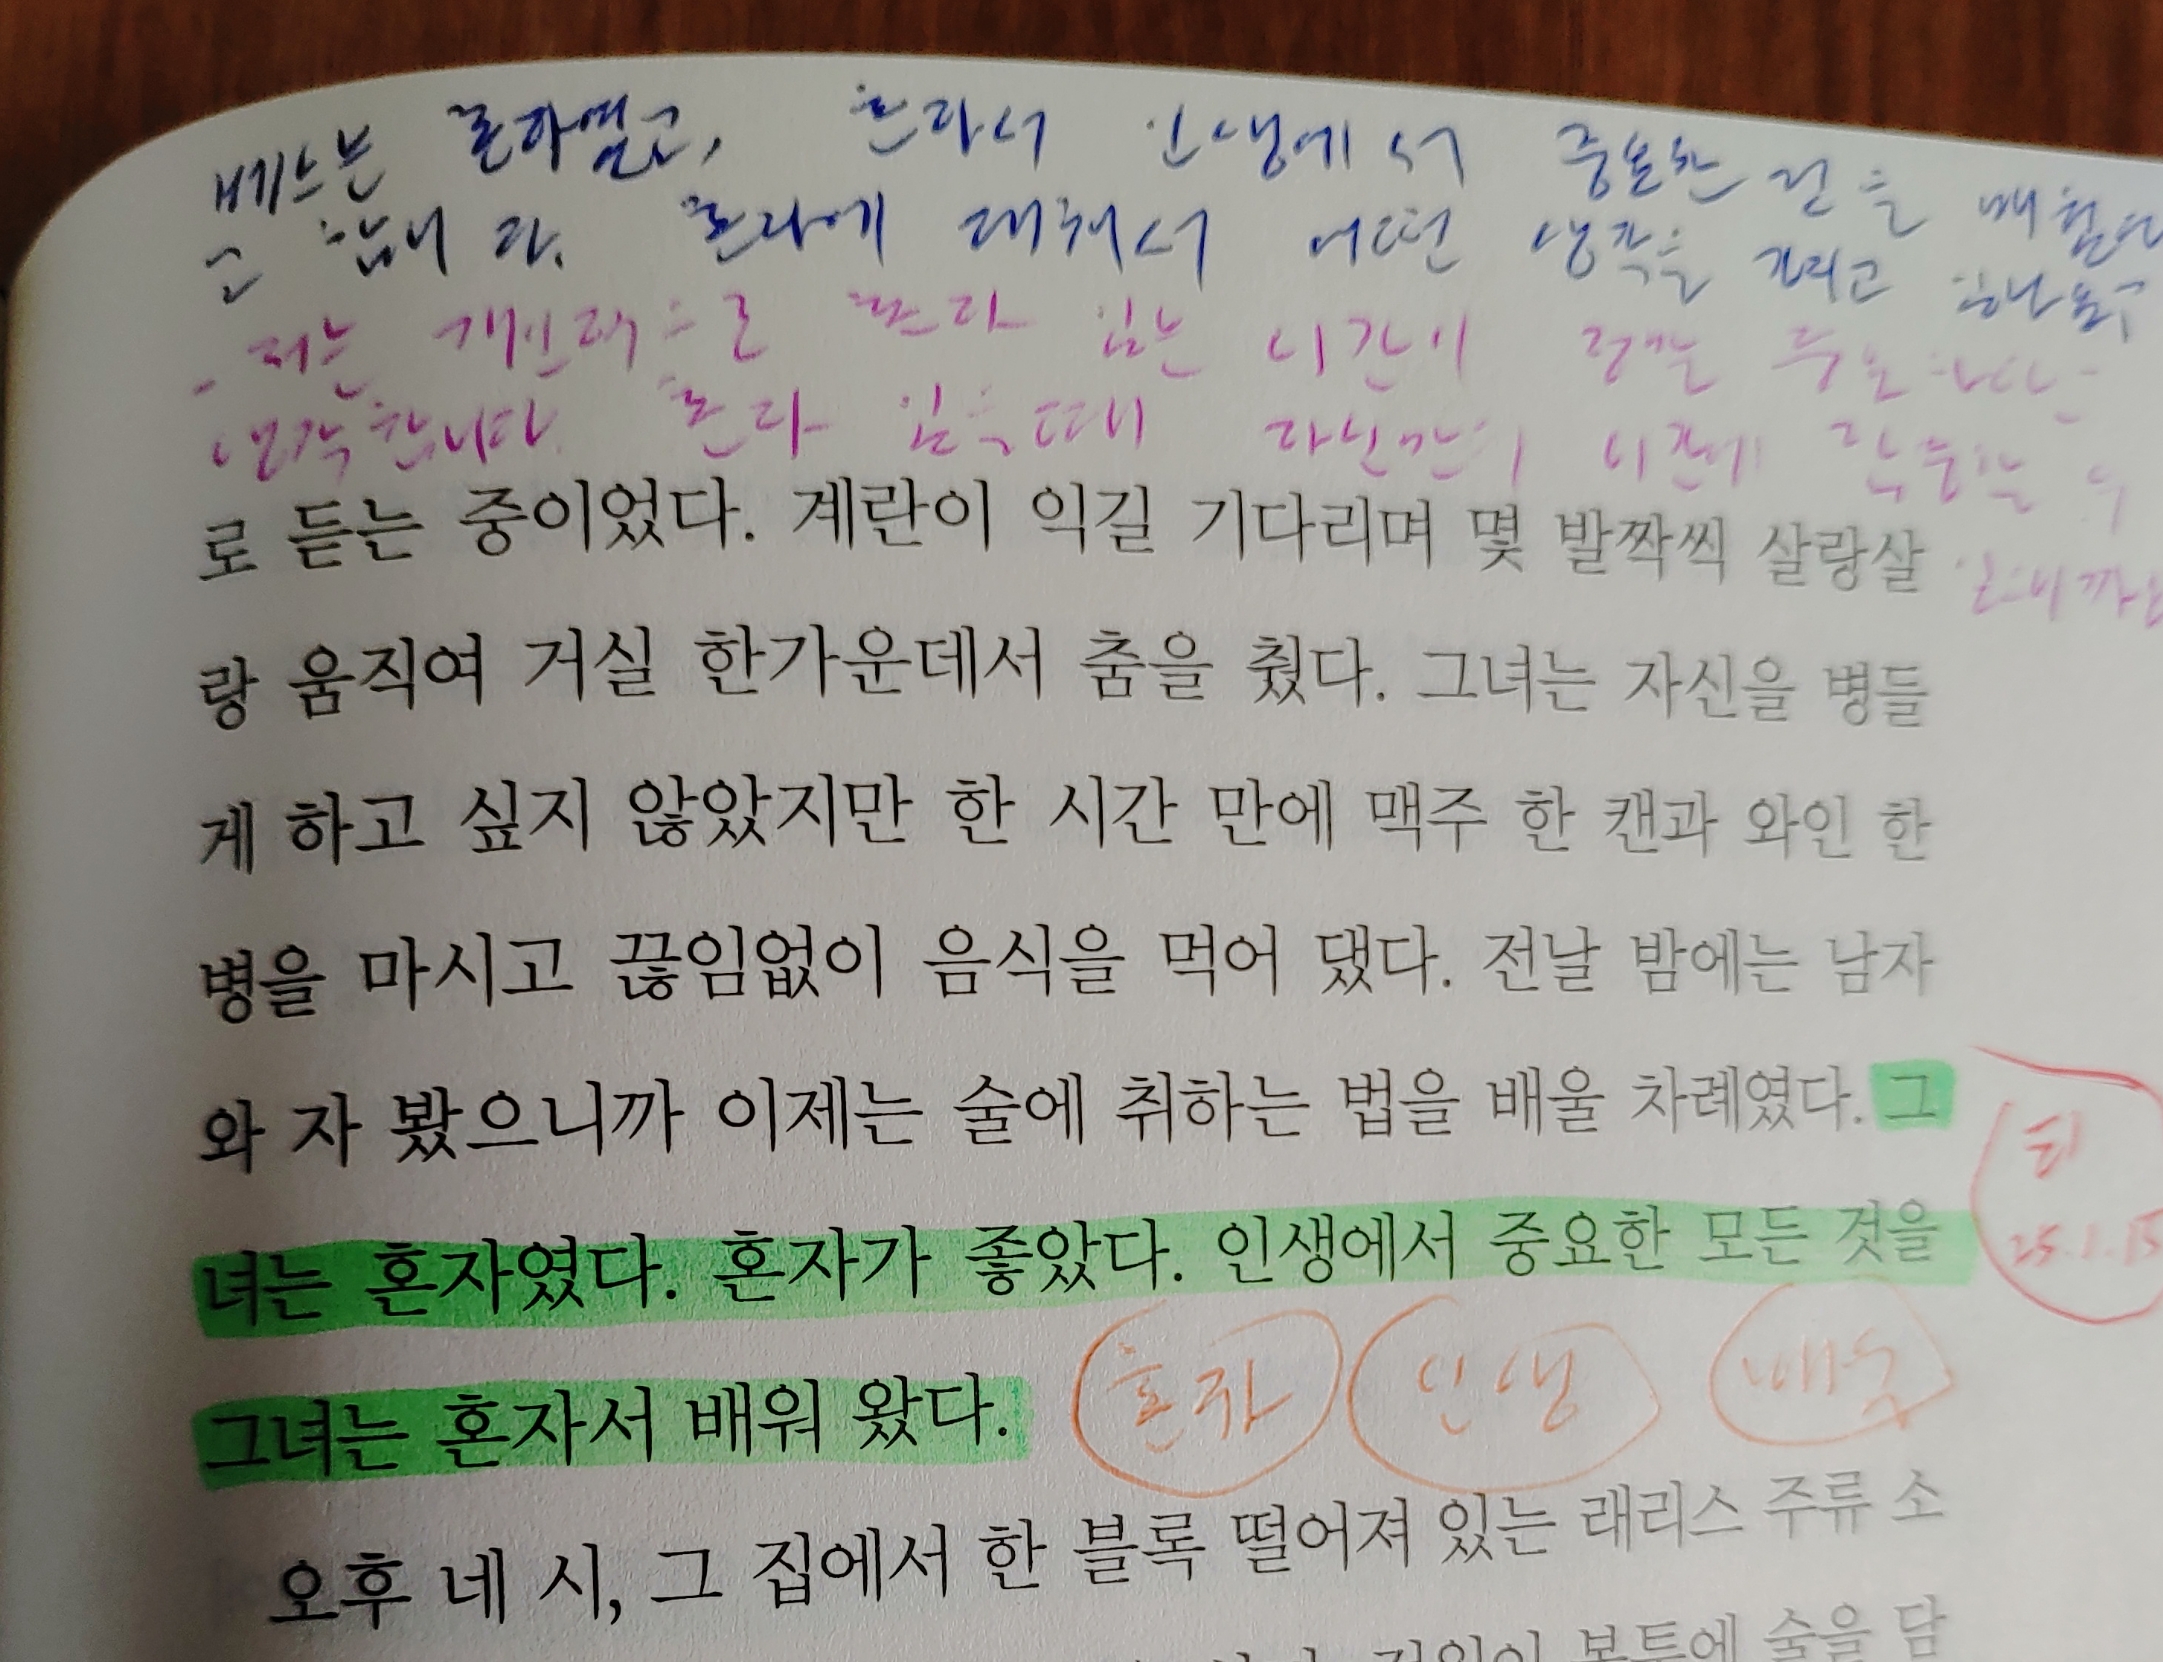 베스는 혼자였고, 혼자서 인생에서 중요한 것을 배웠다
고 합니다. 혼자에 대해서 어떤 생각을 갖고
- 저는 개인적으로 혼자 있는 시간이 정말 중요하다
생각합니다. 혼자 있을 때 자신만의 시간에
로 듣는 중이었다. 계란이 익길 기다리며 몇 발짝씩 살랑살
랑 움직여 거실 한가운데서 춤을 췄다. 그녀는 자신을 병들
게 하고 싶지 않았지만 한 시간 만에 맥주 한 캔과 와인 한
병을 마시고 끊임없이 음식을 먹어 댔다. 전날 밤에는 남자
와 자 봤으니까 이제는 술에 취하는 법을 배울 차례였다. 그
녀는 혼자였다. 혼자가 좋았다. 인생에서 중요한 모든 것을
25.1.15
그녀는 혼자서 배워 왔다.
혼자 인생 배움
오후 네 시, 그 집에서 한 블록 떨어져 있는 래리스 주류 소
봉투에 술을 담